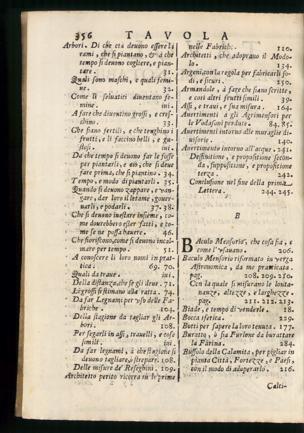 356 TAVOLA
Arbori. Di che età deuono essere li
rami, che si piantano, & à che
tempo si deuono cogliere, e pian-
tare. 31.
Quali sono maschi, e quali femi-
ne. 32.
Come li seluatici diuentano fe-
mine. iui.
A fare che diuentino grossi, e cres-
chino. 33.
Che siano fertili, e che tenghino i
frutti, e li faccino belli, e gu-
stosi. iui.
Da che tempo si deuono far le fosse
per piantarli, e ciò, che si deue
fare prima, che si piantino. 34.
Tempo, e modo di piantarli. 35.
Quando si deuono zappare, e von-
gare, dar loro il letame, gouer-
narli, e podarli. 37. 38.
Che si deuono inestare insieme, co-
me dourebbero esser fatti, e co-
me se ne possa hauere. 46.
Che fioriscono, come si deuono incal-
mare per tempo. 51.
A conoscere li loro nomi in prat-
tica. 69. 70.
Quali da traue. iui.
Della distanza, che se gli deue. 71.
Li grossi si stimano alla ratta. 74.
Da far Legnami per vso delle Fa-
briche. 104.
Della stagione da tagliar gli Ar-
bori. 108.
Per segarli in assi, trauelli, e cose
simili. iui.
Da far legnami, à che stagione si
deuono tagliare, & strepare. 108.
Delle misure de' Reseghini. 109.
Architetto perito ricorra in le prime
nelle Fabriche. 110.
Architetti, che adoprano il Modo-
lo. 134.
Argeni, con la regola per fabricarli so-
di, e sicuri. 250.
Armandole, à far che siano scritte,
e così altri frutti simili. 39.
Assi, e traui, e sua misura. 164.
Auertimenti à gli Agrimensori per
le Vadasioni perdute. 84. 85.
Auertimenti intorno alle muraglie di-
uisorie. 140.
Auertimento intorno all'acque. 231.
Deffinitione, e propositione secon-
da, suppositione, e propositione
terza. 242.
Conclusione nel fine della prima
Lettera. 244. 245.
B
Baculo Mensorio, che cosa sia, e
come l'vsauano. 206.
Baculo Mensorio riformato in verga
Astronomica, da me pratticata.
pag. 208. 209. 210.
Con la quale si misurano le lonta-
nanze, altezze, e larghezze
pag. 211. 212. 213.
Biade, e tempo di venderle. 18.
Bocca sferica. 229.
Botti per sapere la loro tenuta. 177.
Buratto, ò sia Farlene da burattare
la Farina. 284.
Bussola della Calamita, per pigliar in
pianta Città, Fortezze, e Paesi,
con il modo di adoperarlo. 216.
Calti-